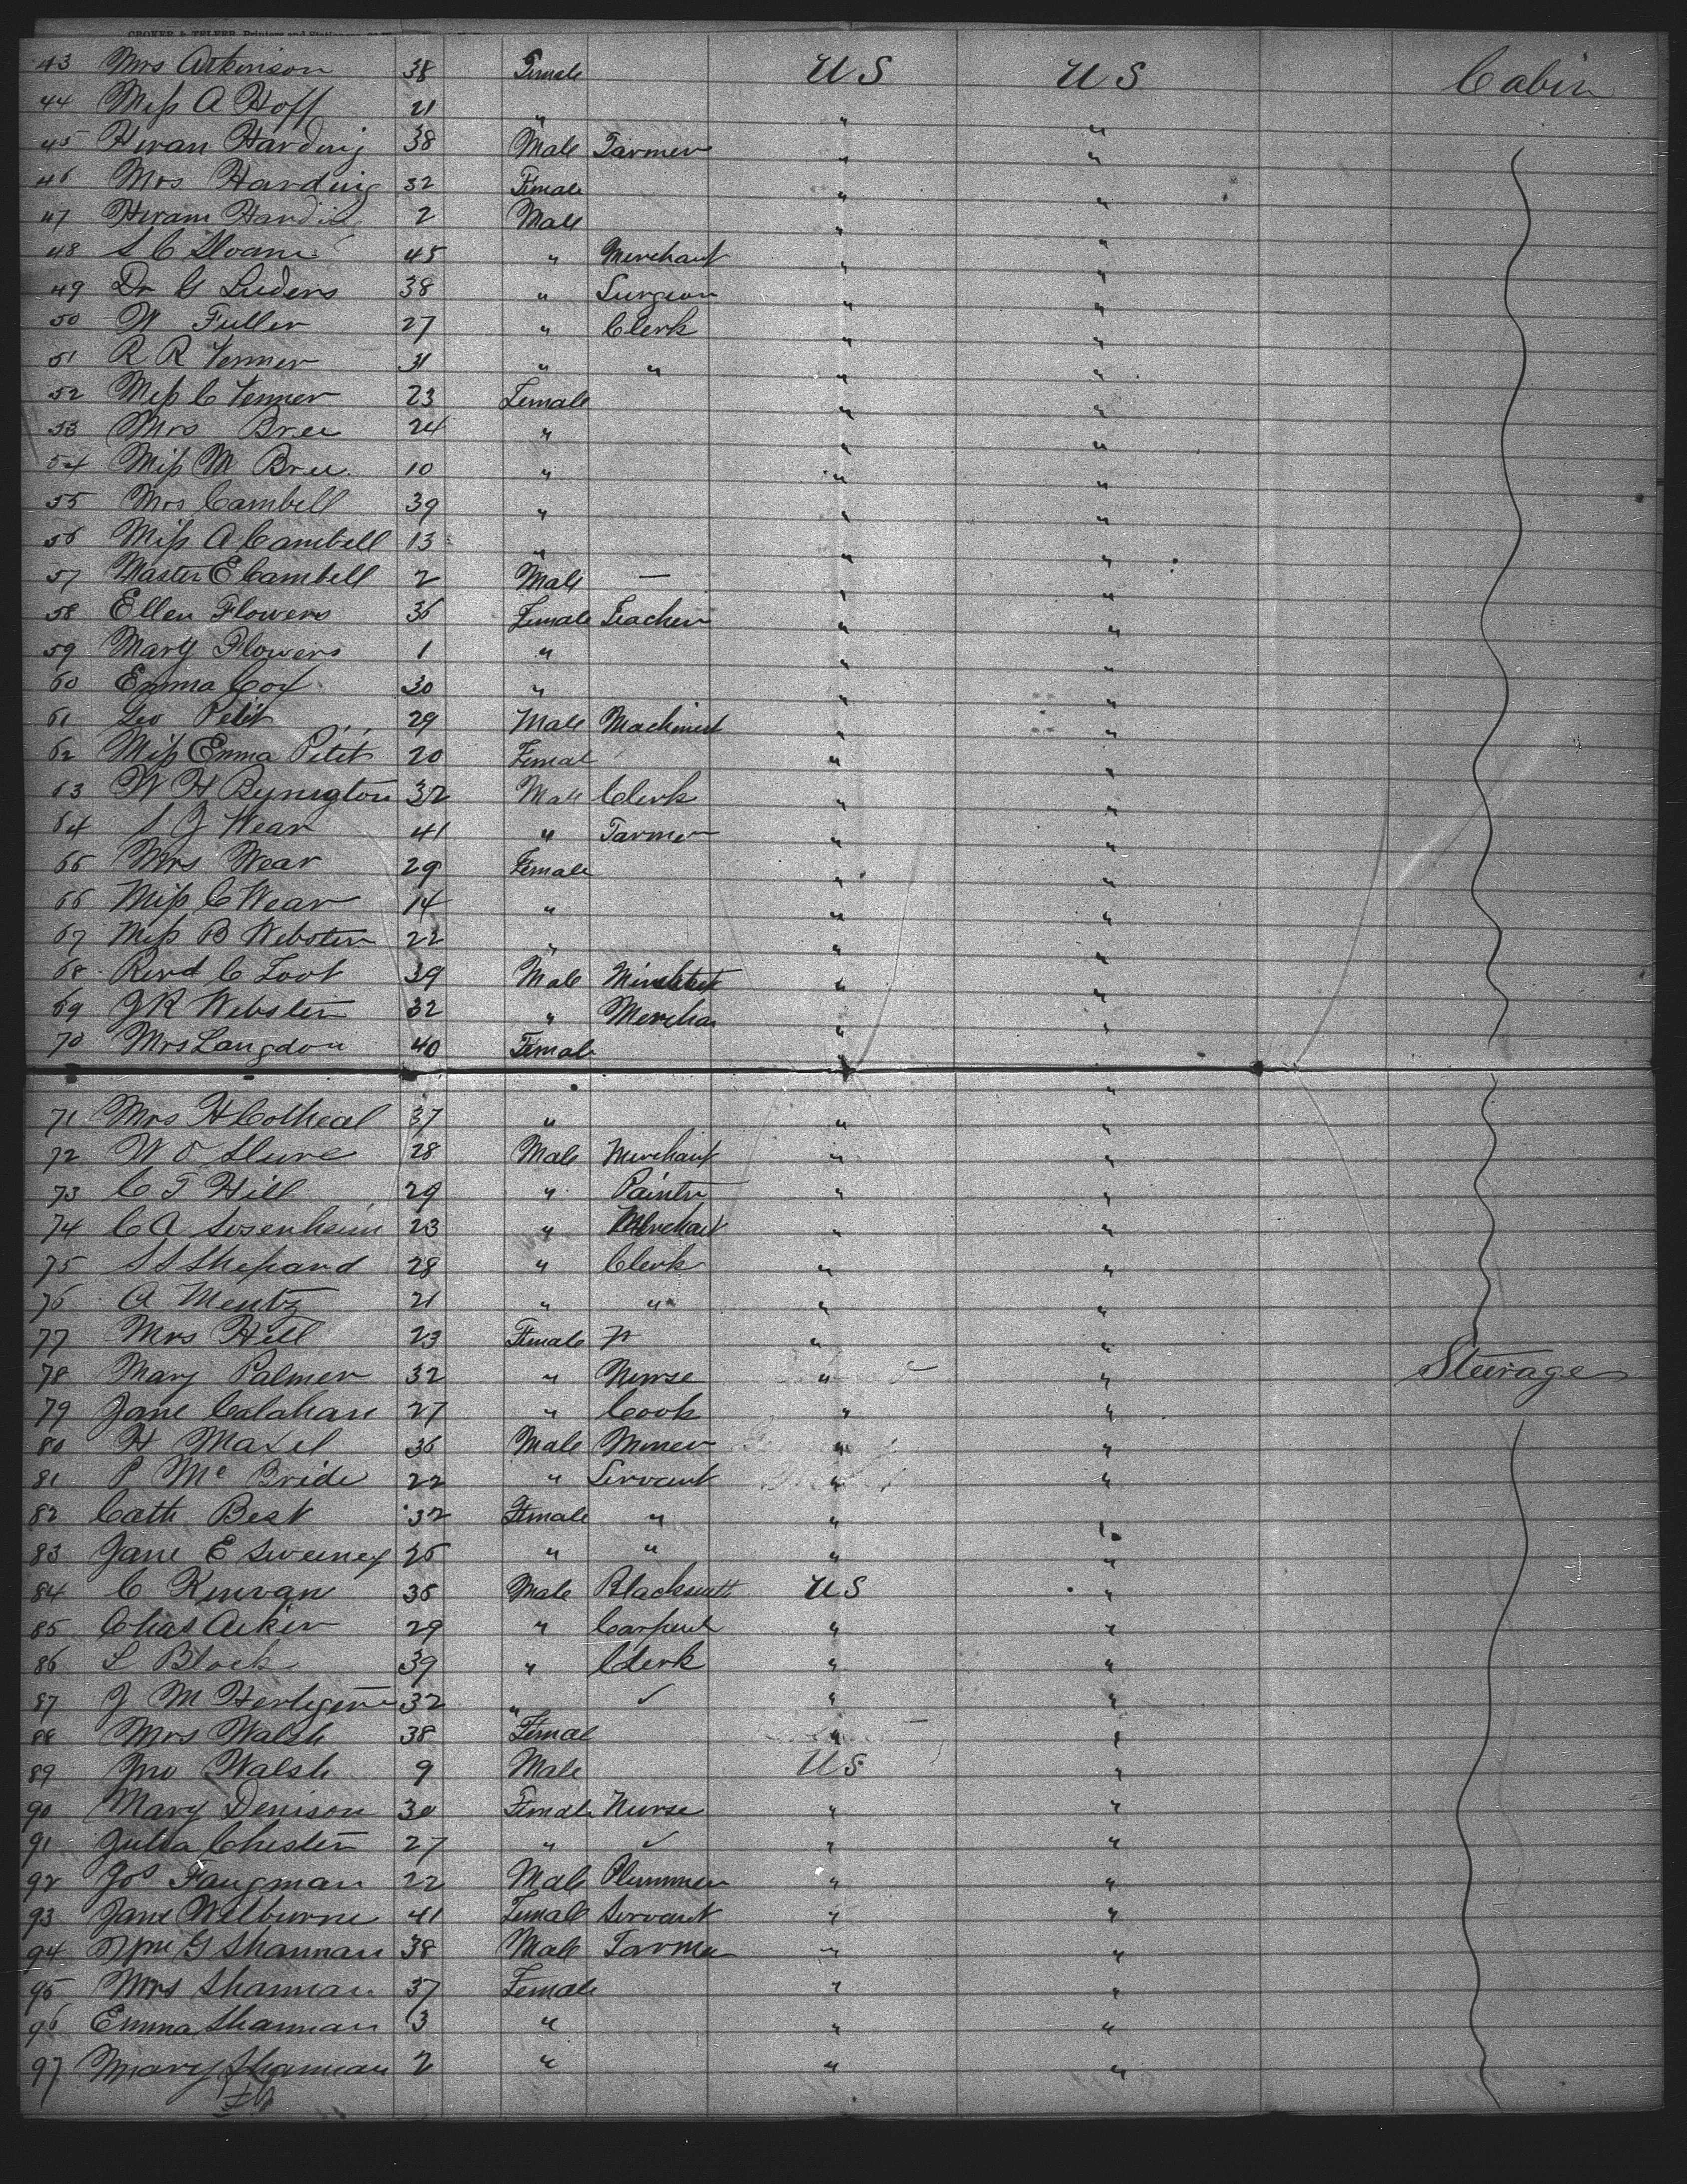 CROKER & TELFER, Printers and Stationers
43 Mrs Atkinson 38 Female U S U S Cabin
44 Miss A Hoff 21 " " "
45 Hiram Harding 38 Male Farmer " "
46 Mrs Harding 32 Female " "
47 Hiram Harding 2 Male " "
48 S C Sloane 45 " Merchant " "
49 Dr G Luders 38 " Surgeon " "
50 W Fuller 27 " Clerk " "
51 R R Venner 31 " " " "
52 Miss C Venner 23 Female " "
53 Mrs Bree 24 " " "
54 Miss M Bree 10 " " "
55 Mrs Cambell 39 " " "
56 Miss A Cambell 13 " " "
57 Master E Cambell 2 Male — " "
58 Ellen Flowers 36 Female Teacher " "
59 Mary Flowers 1 " " "
60 Emma Cox 30 " " "
61 Geo Petit 29 Male Machinist " "
62 Miss Emma Petit 20 Femal " "
63 W H Byington 32 Male Clerk " "
64 S J Wear 41 " Farmer " "
65 Mrs Wear 29 Female " "
66 Miss C Wear 14 " " "
67 Miss B Webster 22 " " "
68 Revd C Foot 39 Male " "
69 J R Webster 32 " Mercha " "
70 Mrs Langdon 40 Female " "
71 Mrs H Cotheal 37 " " "
72 W O 28 Male Merchant " "
73 C T Hill 29 " Painter " "
74 C A 23 " Merchant " "
75 S S Shepard 28 " Clerk " "
76 A Mentz 21 " " " "
77 Mrs Hill 23 Female " " "
78 Mary Palmer 32 " Nurse " " Steerage
79 Jane Calahan 27 " Cook " "
80 H 36 Male Miner " "
81 P Mc Bride 22 " Servant " "
82 Cath Best 32 Female " " "
83 Jane E Sweeney 26 " " " "
84 C Kirwan 36 Male Blacksmith U S "
85 Chas Aiken 29 " Carpent " "
86 L Block 39 " Clerk " "
87 J M 32 " ✓ " "
88 Mrs Walsh 38 Femal " "
89 Jno Walsh 9 Male U S "
90 Mary Denison 30 Female Nurse " "
91 Julia Chester 27 " ✓ " "
92 Jos Faugman 22 Male Plummer " "
93 Jane Welburne 41 Female Servant " "
94 Wm G Shannan 38 Male Farmer " "
95 Mrs Shannan 37 Female " "
96 Emma Shannan 3 " " "
97 Mary Shannan 2 " " "